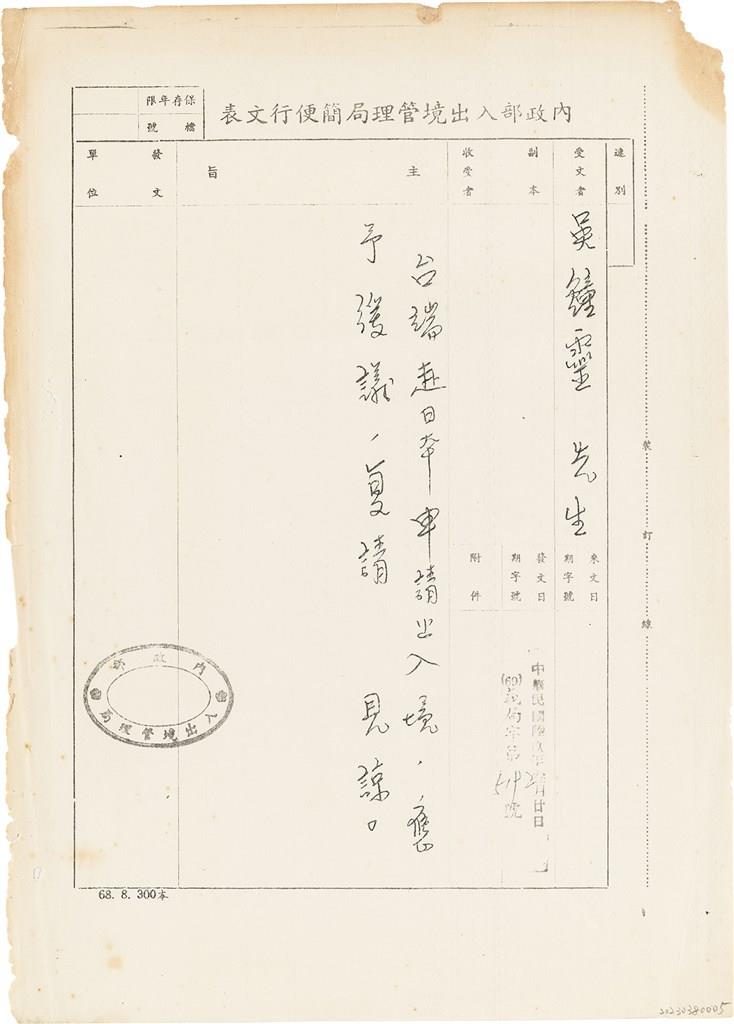 內政部入出境管理局簡便行文表
保存年限
檔號
速別
受文者
吳鐘靈 先生
來文日期字號
副本收受者
發文日期字號
中華民國陸玖年 月廿日
(69) 局字第 號
附件
主旨
台端赴日本申請出入境,應
予緩議,复請 見諒。
發文單位
內政部
入出境管理局
裝訂線
68. 8. 300本
20230380005